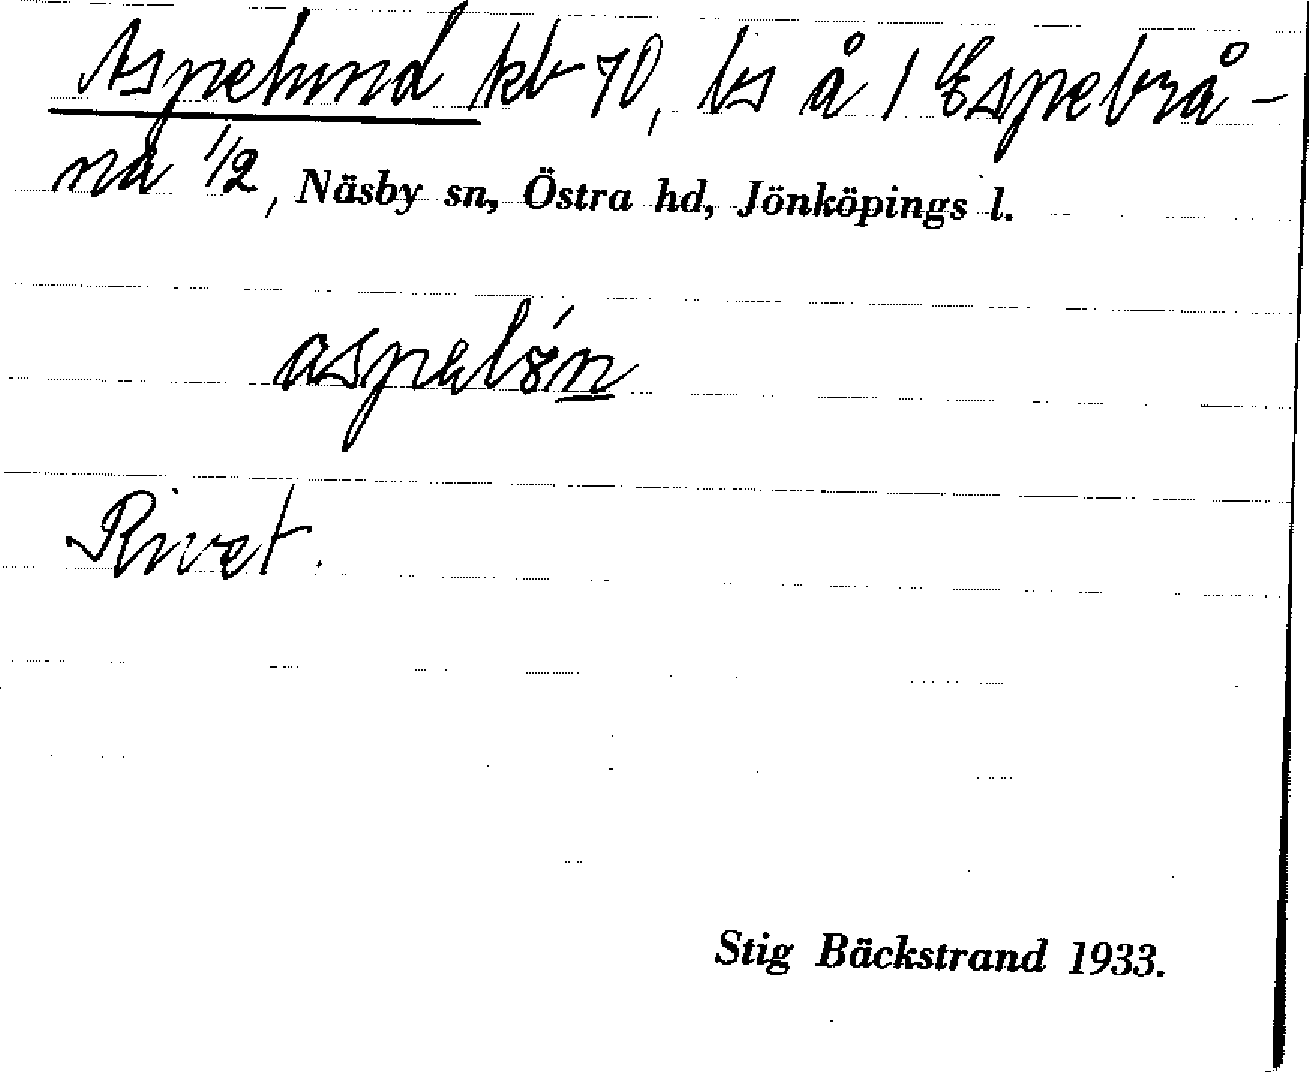 Aspelund kb 70, ls å 1 Espebrå-
na 1/2, Näsby sn, Östra hd, Jönköpings l.
aspelón
Rivet.
Stig Bäckstrand 1933.